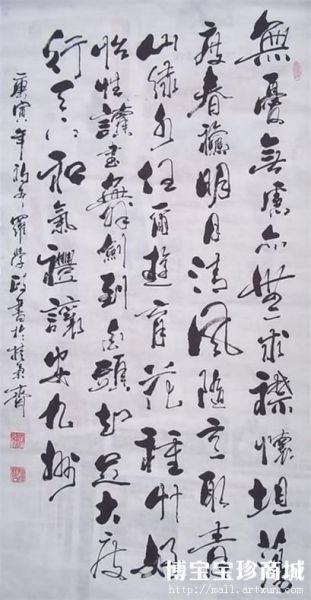 無憂無慮亦無求襟懷坦蕩
度春秋明月清風隨意取青
山綠水任爾遊育花種竹好
怡性讀書舞劍到白頭知足大度
行天下和氣禮讓安九州
庚寅年羅學政書於桂齋
博宝宝珍商城
http://mall.artxun.com/